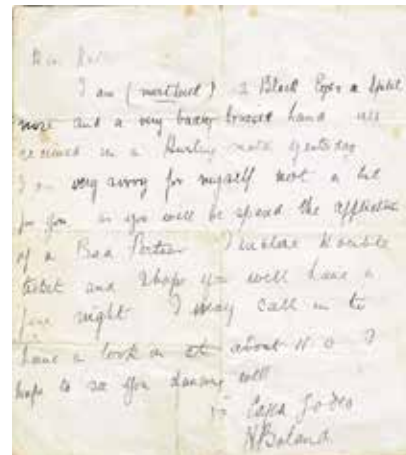 I am (            ) 2 Black Eyes a Split
nose and a very badly bruised hand all
received in a Hurling match yesterday
I am very sorry for myself not a bit
for you as you will be spared the affliction
of a Bad Partner I enclose Double
ticket and I hope you will have a
fine night I may call in to
have a look in at about 11 o
hope to see you dancing well
H Boland